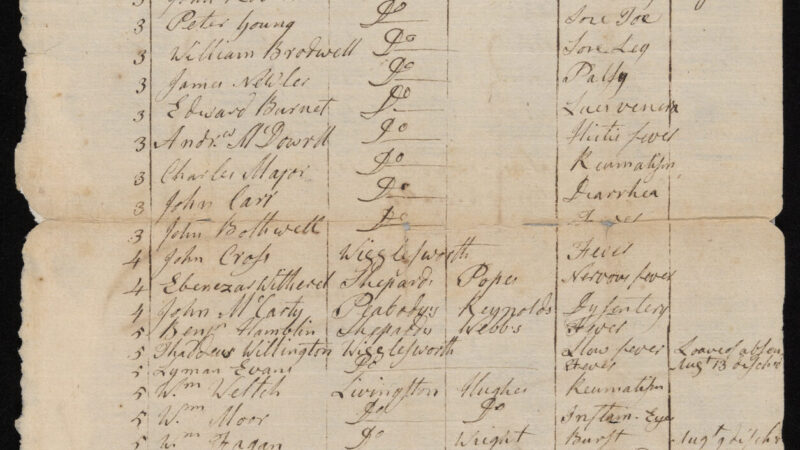 3 Peter Young Do Sore Toe
3 William Brodwell Do Sore Leg
3 James Nowler Do Palsy
3 Edward Burnet Do Lues venera
3 Andrw McDowell Do fever
3 Charles Major Do Reumatism
3 John Carr Do Diarrhea
3 John Bothwell Do Fever
4 John Cross Wigglesworth Fever
4 Ebenezar Witherel Shepards Popes Nervous fever
4 John McCarty Peabodys Reynolds Dysentery
5 Benjn Hamblin Shepards Webbs Fever
5 Thaddeus Willington Wigglesworth Slow fever Leave of absen
5 Lyman Evans Do Fever Augt 13 disch
5 Wm Weltch Livingston Hughes Reumatism
5 Wm Moor Do Do Inflam. Eyes
5 Wm Fagan Do Wright Burst Augt 9 disch